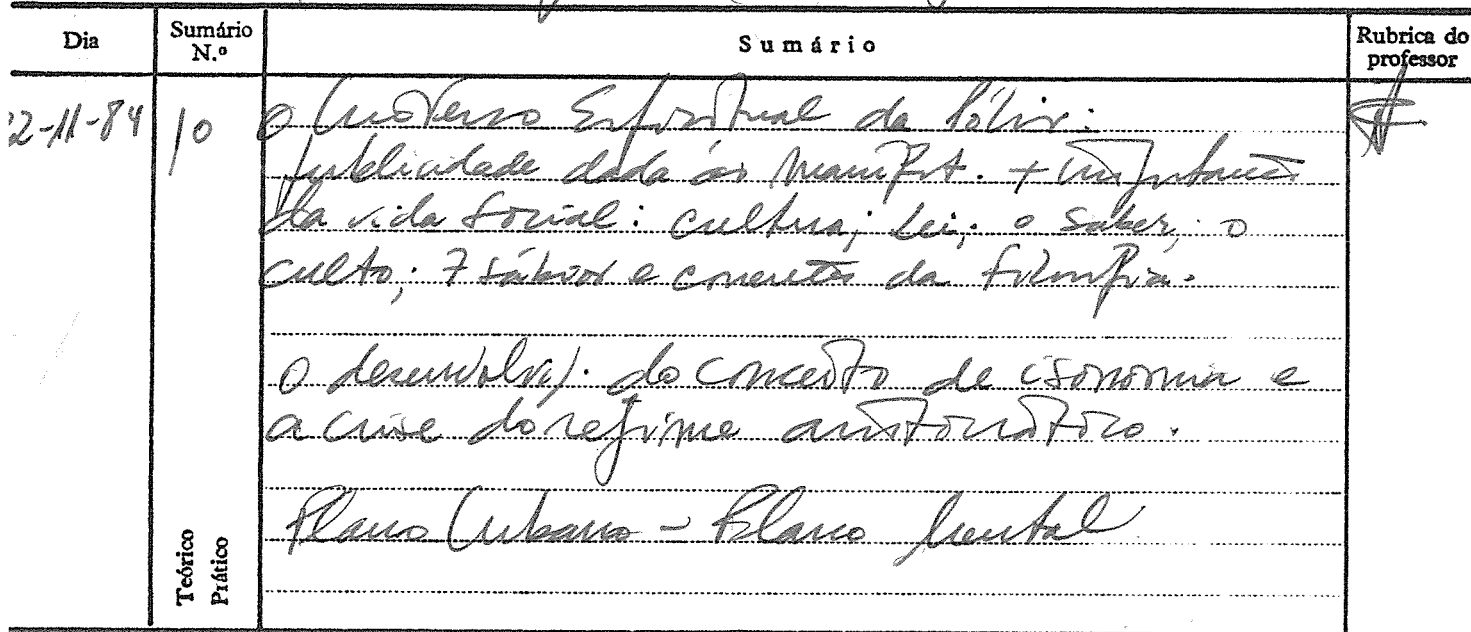 Dia
Sumário N.º
Sumário
Rubrica do professor
22-11-84
10
O Universo Espiritual da Pólis:
publicidade dada às manifest. + importantes
da vida social: cultura; lei; o saber; o
culto; 7 sábios e da filosofia.
O desenvolvi/. do conceito de isonomia e
a crise do regime aristocrático.
Plano Urbano - Plano Mental
Teórico
Prático